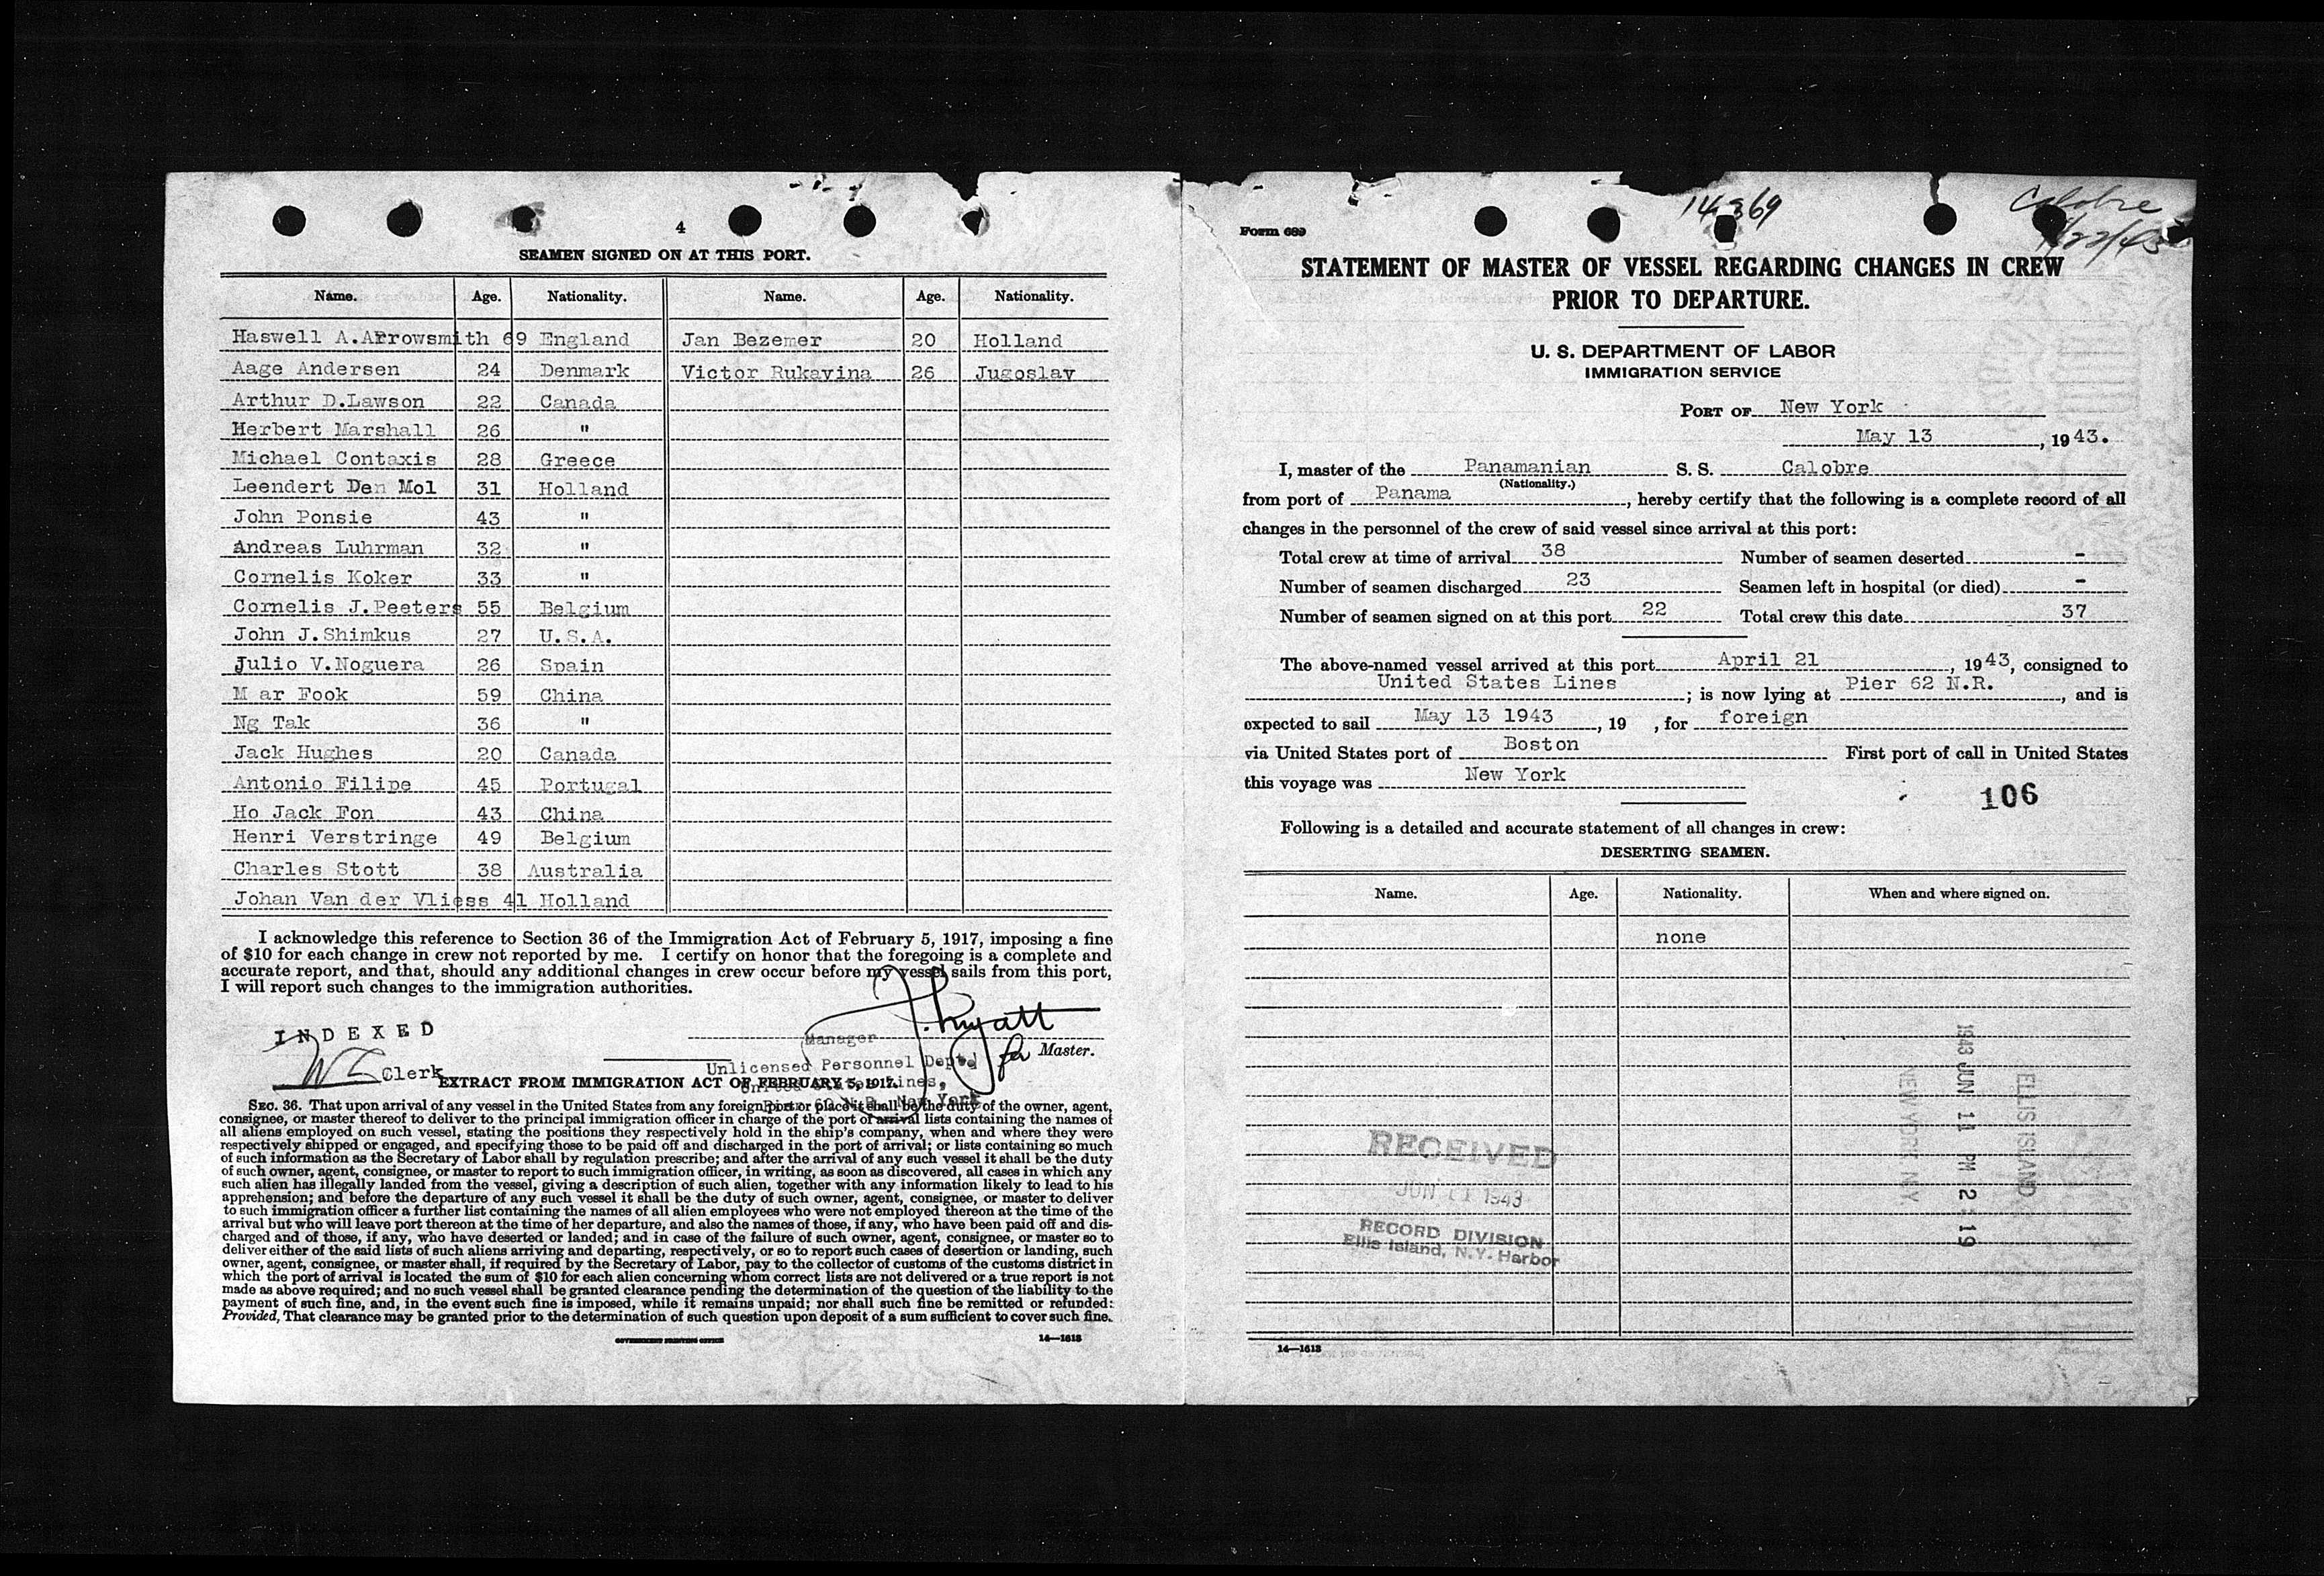 4
SEAMEN SIGNED ON AT THIS PORT.
Name. Age. Nationality. Name. Age. Nationality.
Haswell A.Arrowsmith 69 England Jan Bezemer 20 Holland
Aage Andersen 24 Denmark Victor Rukavina 26 Jugoslav
Arthur D.Lawson 22 Canada
Herbert Marshall 26 "
Michael Contaxis 28 Greece
Leendert Den Mol 31 Holland
John Ponsie 43 "
Andreas Luhrman 32 "
Cornelis Koker 33 "
Cornelis J.Peeters 55 Belgium
John J.Shimkus 27 U.S.A.
Julio V.Noguera 26 Spain
M ar Fook 59 China
Ng Tak 36 "
Jack Hughes 20 Canada
Antonio Filipe 45 Portugal
Ho Jack Fon 43 China
Henri Verstringe 49 Belgium
Charles Stott 38 Australia
Johan Van der Vliess 41 Holland
I acknowledge this reference to Section 36 of the Immigration Act of February 5, 1917, imposing a fine
of $10 for each change in crew not reported by me. I certify on honor that the foregoing is a complete and
accurate report, and that, should any additional changes in crew occur before my vessel sails from this port,
I will report such changes to the immigration authorities.
INDEXED
Clerk
Manager
for Master.
Unlicensed Personnel Dept.
United States Lines,
Pier 60 N.R. New York
EXTRACT FROM IMMIGRATION ACT OF FEBRUARY 5, 1917.
SEC. 36. That upon arrival of any vessel in the United States from any foreign port or place it shall be the duty of the owner, agent,
consignee, or master thereof to deliver to the principal immigration officer in charge of the port of arrival lists containing the names of
all aliens employed on such vessel, stating the positions they respectively hold in the ship's company, when and where they were
respectively shipped or engaged, and specifying those to be paid off and discharged in the port of arrival; or lists containing so much
of such information as the Secretary of Labor shall by regulation prescribe; and after the arrival of any such vessel it shall be the duty
of such owner, agent, consignee, or master to report to such immigration officer, in writing, as soon as discovered, all cases in which any
such alien has illegally landed from the vessel, giving a description of such alien, together with any information likely to lead to his
apprehension; and before the departure of any such vessel it shall be the duty of such owner, agent, consignee, or master to deliver
to such immigration officer a further list containing the names of all alien employees who were not employed thereon at the time of the
arrival but who will leave port thereon at the time of her departure, and also the names of those, if any, who have been paid off and dis-
charged and of those, if any, who have deserted or landed; and in case of the failure of such owner, agent, consignee, or master so to
deliver either of the said lists of such aliens arriving and departing, respectively, or so to report such cases of desertion or landing, such
owner, agent, consignee, or master shall, if required by the Secretary of Labor, pay to the collector of customs of the customs district in
which the port of arrival is located the sum of $10 for each alien concerning whom correct lists are not delivered or a true report is not
made as above required; and no such vessel shall be granted clearance pending the determination of the question of the liability to the
payment of such fine, and, in the event such fine is imposed, while it remains unpaid; nor shall such fine be remitted or refunded:
Provided, That clearance may be granted prior to the determination of such question upon deposit of a sum sufficient to cover such fine.
GOVERNMENT PRINTING OFFICE 14—1613
Form 689
Calobre
STATEMENT OF MASTER OF VESSEL REGARDING CHANGES IN CREW
PRIOR TO DEPARTURE.
U. S. DEPARTMENT OF LABOR
IMMIGRATION SERVICE
PORT OF New York
May 13, 1943.
I, master of the Panamanian S. S. Calobre
(Nationality.)
from port of Panama, hereby certify that the following is a complete record of all
changes in the personnel of the crew of said vessel since arrival at this port:
Total crew at time of arrival 38 Number of seamen deserted -
Number of seamen discharged 23 Seamen left in hospital (or died) -
Number of seamen signed on at this port 22 Total crew this date 37
The above-named vessel arrived at this port April 21, 1943, consigned to
United States Lines; is now lying at Pier 62 N.R., and is
expected to sail May 13 1943, 19 , for foreign
via United States port of Boston First port of call in United States
this voyage was New York
106
Following is a detailed and accurate statement of all changes in crew:
DESERTING SEAMEN.
Name. Age. Nationality. When and where signed on.
none
RECEIVED
JUN 11 1943
RECORD DIVISION
Ellis Island, N.Y. Harbor
NEW YORK N.Y.
1943 JUN 11 PM 2 19
ELLIS ISLAND
14—1613